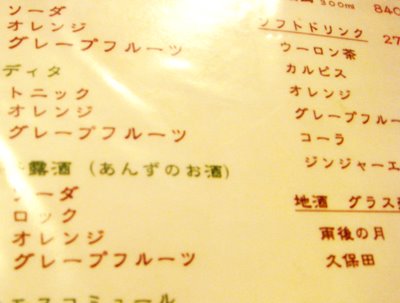 ソーダ
オレンジ
グレープフルーツ
ディタ
トニック
オレンジ
グレープフルーツ
露酒 (あんずのお酒)
ソーダ
ロック
オレンジ
グレープフルーツ
モスコミュール
300ml 840
ソフトドリンク 27
ウーロン茶
カルピス
オレンジ
グレープフルー
コーラ
ジンジャーエ
地酒 グラス
雨後の月
久保田